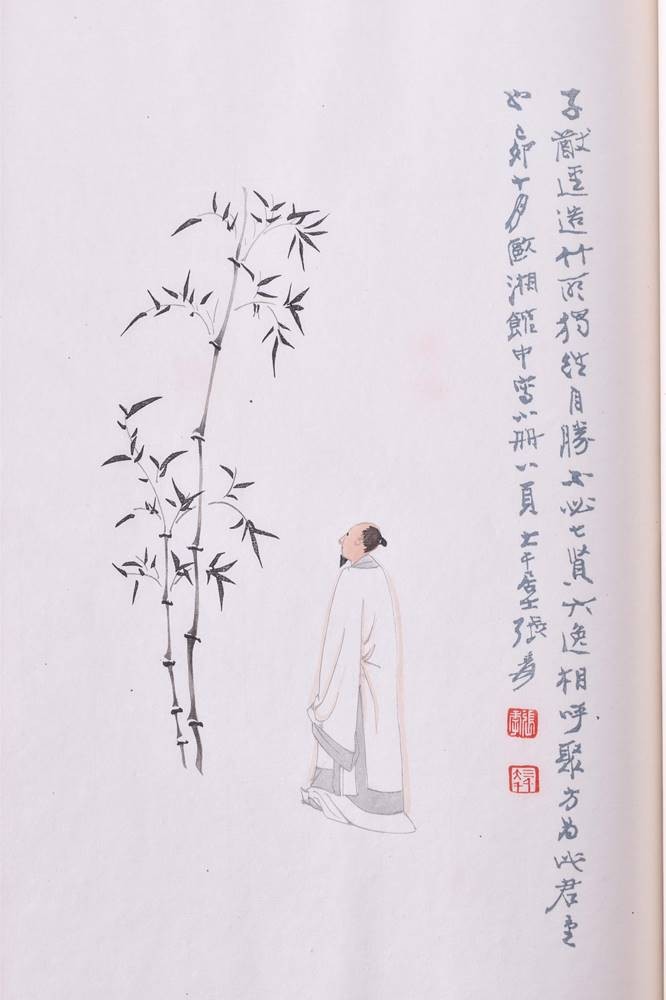 子猷逕造竹所獨往自勝不必七賢六逸相呼聚方為此君重
也己卯十月歐湘館中寫小册八頁大千居士張爰